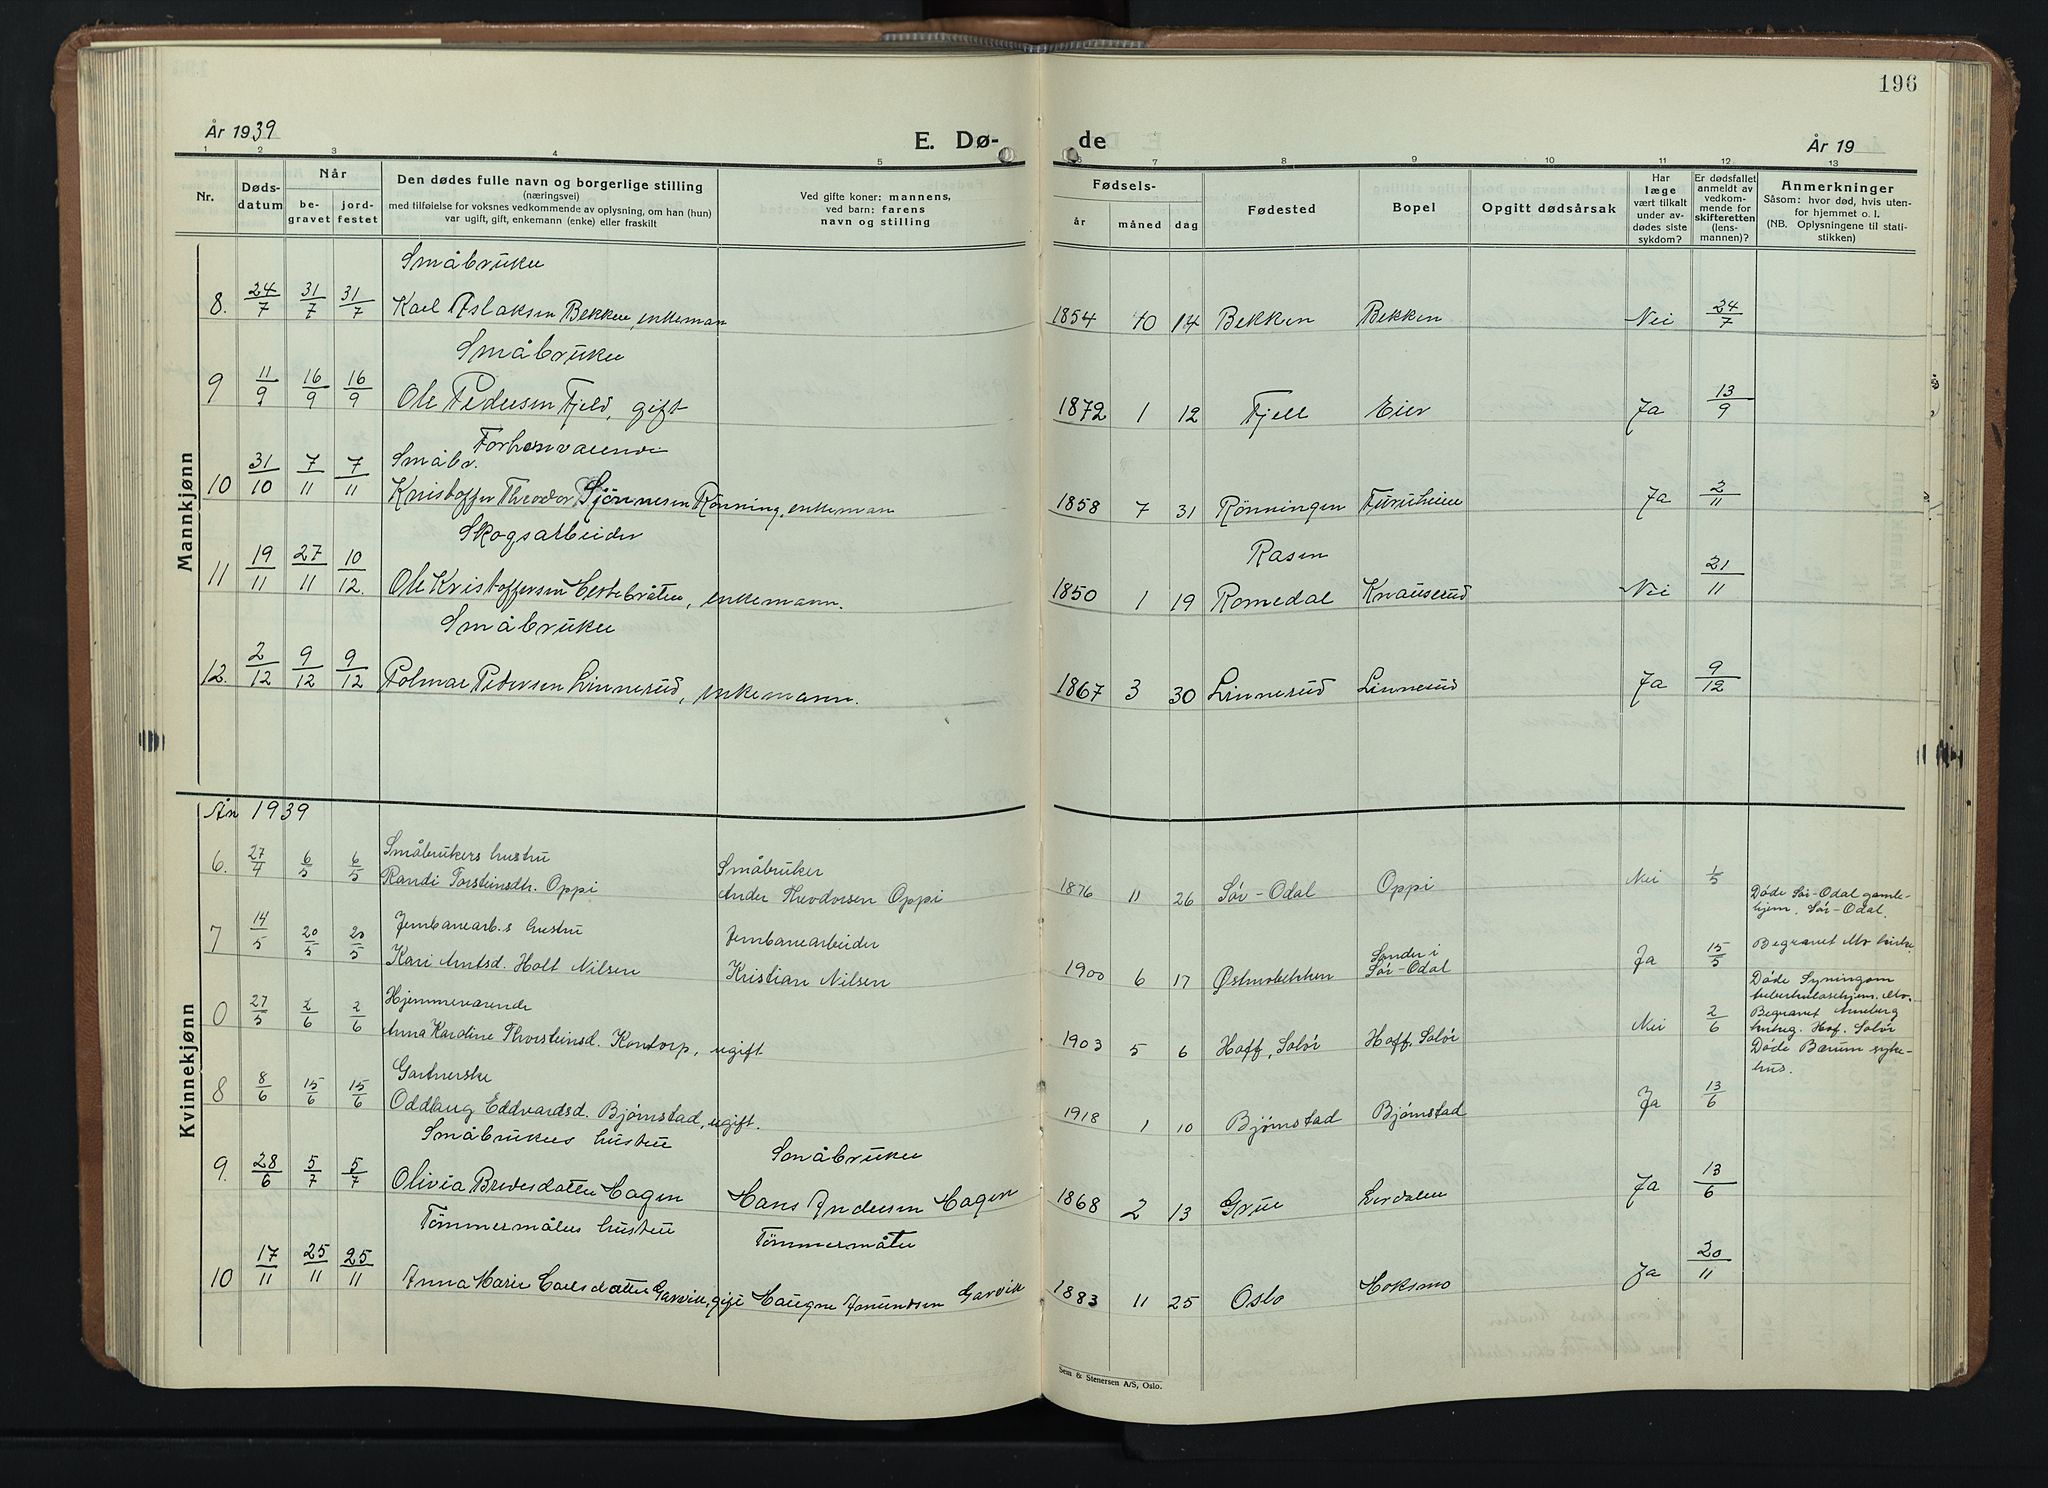 196
År 1939
E. Dø-
de
År 19
1 2 3 4 5 6 7 8 9 10 11 12 13
Nr.
Døds-
datum
Når
be-
gravet
jord-
festet
Den dødes fulle navn og borgerlige stilling
(næringsvei)
med tilføielse for voksnes vedkommende av oplysning, om han (hun)
var ugift, gift, enkemann (enke) eller fraskilt
Ved gifte koner: mannens,
ved barn: farens
navn og stilling
Fødsels-
år måned dag
Fødested
Bopel
Opgitt dødsårsak
Har
læge
vært tilkalt
under av-
dødes siste
sykdom?
Er dødsfallet
anmeldt av
vedkom-
mende for
skifteretten
(lens-
mannen)?
Anmerkninger
Såsom: hvor død, hvis uten-
for hjemmet o. l.
(NB. Oplysningene til stati-
stikken)
Mannkjønn
Småbruker
8. 24/7 31/7 31/7 Karl Aslaksen Bekken, enkeman 1854 10 14 Bekken Bekken Nei 24/7
Småbruker
9 11/9 16/9 16/9 Ole Pedersen Fjeld, gift 1872 1 12 Fjell Eier Ja 13/9
Forhenværende
Småbr.
10 31/10 7/11 7/11 Kristoffer Theodor Sjønnesen Rønning, enkeman 1858 7 31 Rønningen Furuheim Ja 2/11
Skogsarbeider Rasen
11 19/11 27/11 10/12. Ole Kristoffersen Hestebråten, enkemann. 1850 1 19 Romedal Knauserud Nei 21/11
Småbruker
12. 2/12 9/12 9/12 Polmar Pedersen Linnerud, enkemann. 1867 3 30 Linnerud Linnerud Ja 9/12
Kvinnekjønn
År 1939
Småbrukers hustru Småbruker
6. 27/4 6/5 6/5 Randi Torsteinsdtr. Oppi Ander Theodorsen Oppi 1876 11 26 Sør-Odal Oppi Nei 1/5
Døde Sør-Odal gamle-
hjem, Sør-Odal.
Jernbanearb.s hustru Jernbanearbeider
7 14/5 20/5 20/5 Kari Arntsd. Holt Nilsen Kristian Nilsen 1900 6 17 Østmobekken Sander i
Sør-Odal Ja 15/5
Begravet Mo kirke.
Døde Syningom
tuberkulosehjem. Mo.
Hjemmeværende
0 27/5 2/6 2/6 Anna Karoline Thorsteinsd. Kontorp, ugift. 1903 5 6 Hoff, Solør Hoff, Solør Nei 2/6
Begravet Arneberg
kirkeg. Hof. Solør
Gartnerske
8 8/6 15/6 15/6 Oddlaug Eddvardsd. Bjørnstad, ugift. 1918 1 10 Bjørnstad Bjørnstad Ja 13/6
Døde Bærum syke-
hus.
Småbrukers hustru Småbruker
9. 28/6 5/7 5/7 Olivia Bredesdatter Hagen Hans Andersen Hagen 1868 2 13 Grue Lerdalen Ja 13/6
Tømmermålers hustru Tømmermåler
10 17/11 25/11 25/11 Anna Marie Carlsdatter Garvik, gift Haugne Amundsen Garvik 1883 11 25 Oslo Hoksmo Ja 20/11
Sem & Stenersen A/S, Oslo.